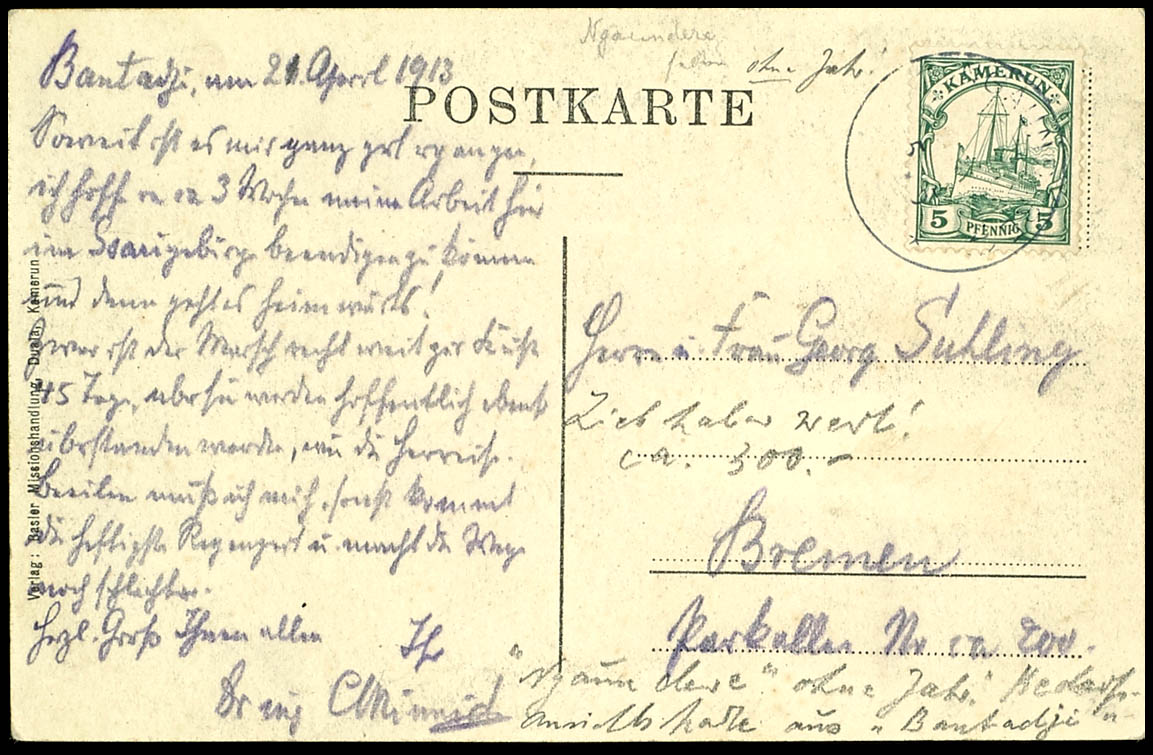 Bantadji, am 21. April 1913
Soweit ist es mir ganz gut ergangen,
ich hoffe in ca 3 Wochen meine Arbeit hier
im Ssarigebirge beendigen zu können
und dann geht es heimwärts!
Zwar ist der Marsch recht weit zur Küste
45 Tage, aber sie werden hoffentlich ebenso
überstanden werden, wie die Herreise.
Beeilen muß ich mich, sonst kommt
die heftigste Regenzeit u. macht die Wege
noch schlechter.
Herzl. Gruß Ihnen allen
Ihr
Dr ing
Verlag: Basler Missionshandlung, Duala, Kamerun
Ngaundere
ohne Jahr!
POSTKARTE
KAMERUN
5 PFENNIG 5
Herrn u. Frau Georg Suhling
Liebhaber wert!
ca. 300.-
Bremen
Parkallee Nr ca 200.
"Ngaundere" ohne Jahr!
Ansichtskarte aus "Bantadji"